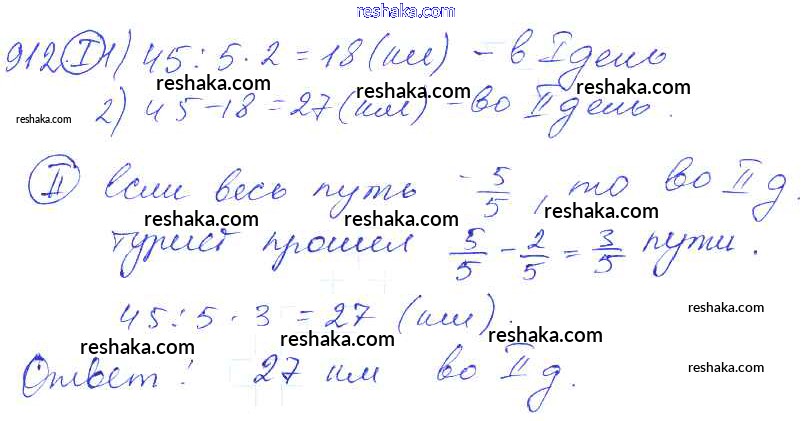 reshaka.com
912. I 1) 45 : 5 · 2 = 18 (км) – в I день
reshaka.com reshaka.com reshaka.com
2) 45 – 18 = 27 (км) – во II день.
reshaka.com
II Если весь путь – 5/5, то во II д.
reshaka.com reshaka.com reshaka.com
турист прошел 5/5 – 2/5 = 3/5 пути.
45 : 5 · 3 = 27 (км).
reshaka.com
reshaka.com reshaka.com reshaka.com
Ответ: 27 км во II д.
reshaka.com